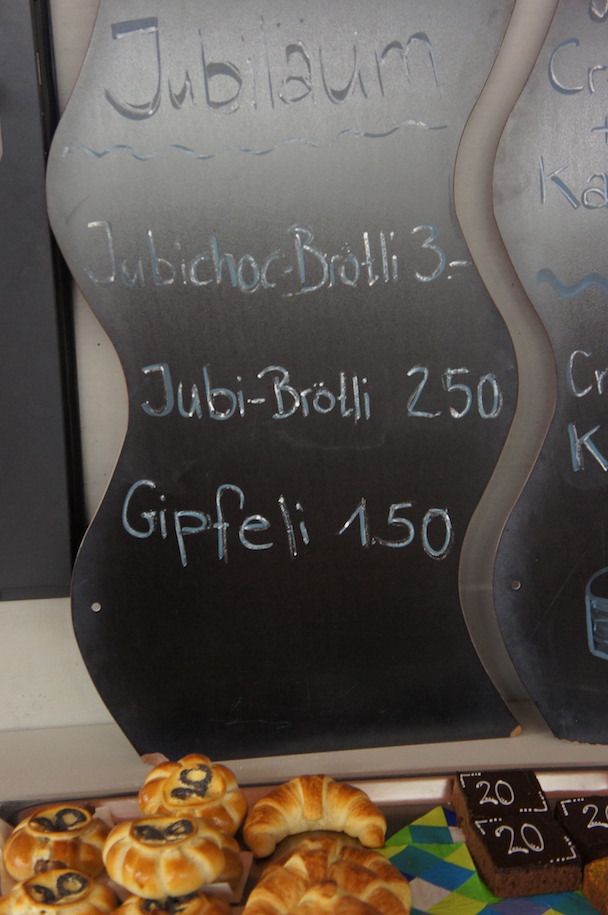 Jubiläum
Jubichoc-Brötli 3.-
Jubi-Brötli 250
Gipfeli 1.50
Cr
+
Ka
Cr
K
20
20